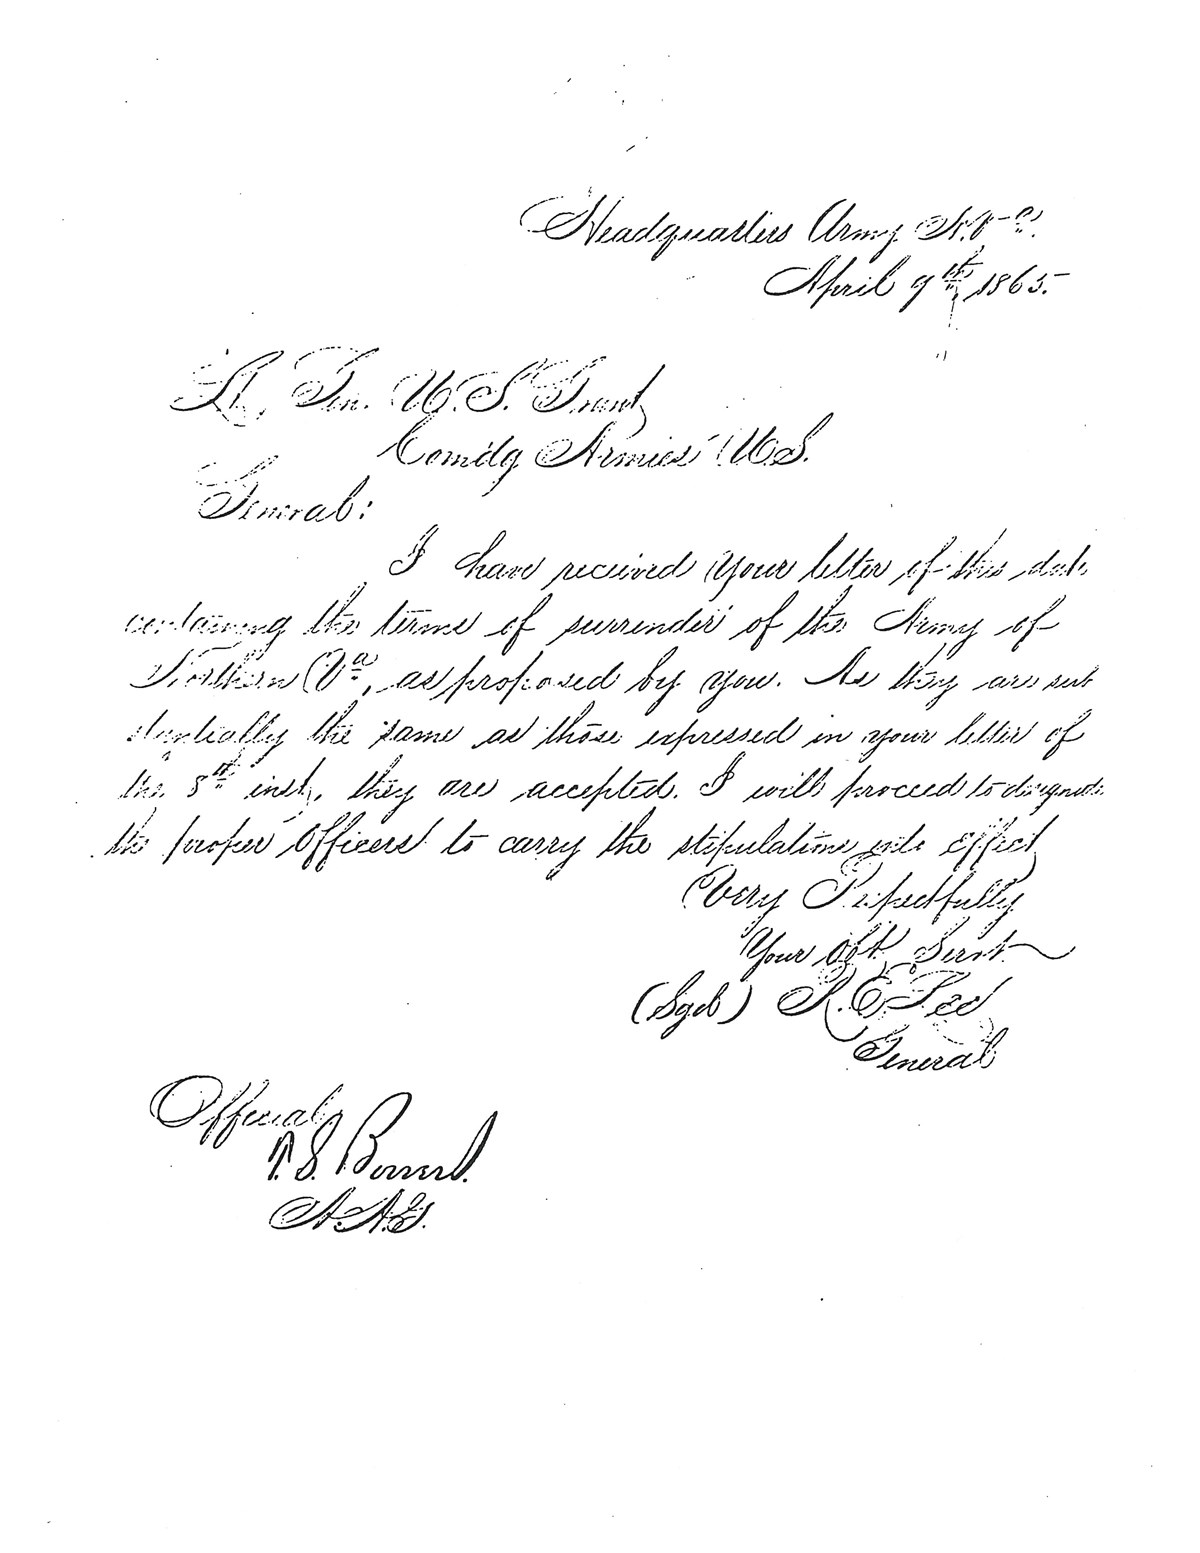 Headquarters Army N. Va.
April 9th, 1865.
Lt. Gen. U. S. Grant
Comdg Armies U S.
General:
I have received your letter of this date
containing the terms of surrender of the Army of
Northern Va, as proposed by you. As they are sub
stantially the same as those expressed in your letter of
the 8th inst, they are accepted. I will proceed to designate
the proper Officers to carry the stipulations into effect
Very Respectfully
Your Obt. Servt
(Sgd) R. E. Lee
General
Official,
T. S. Bowers.
A. A. G.